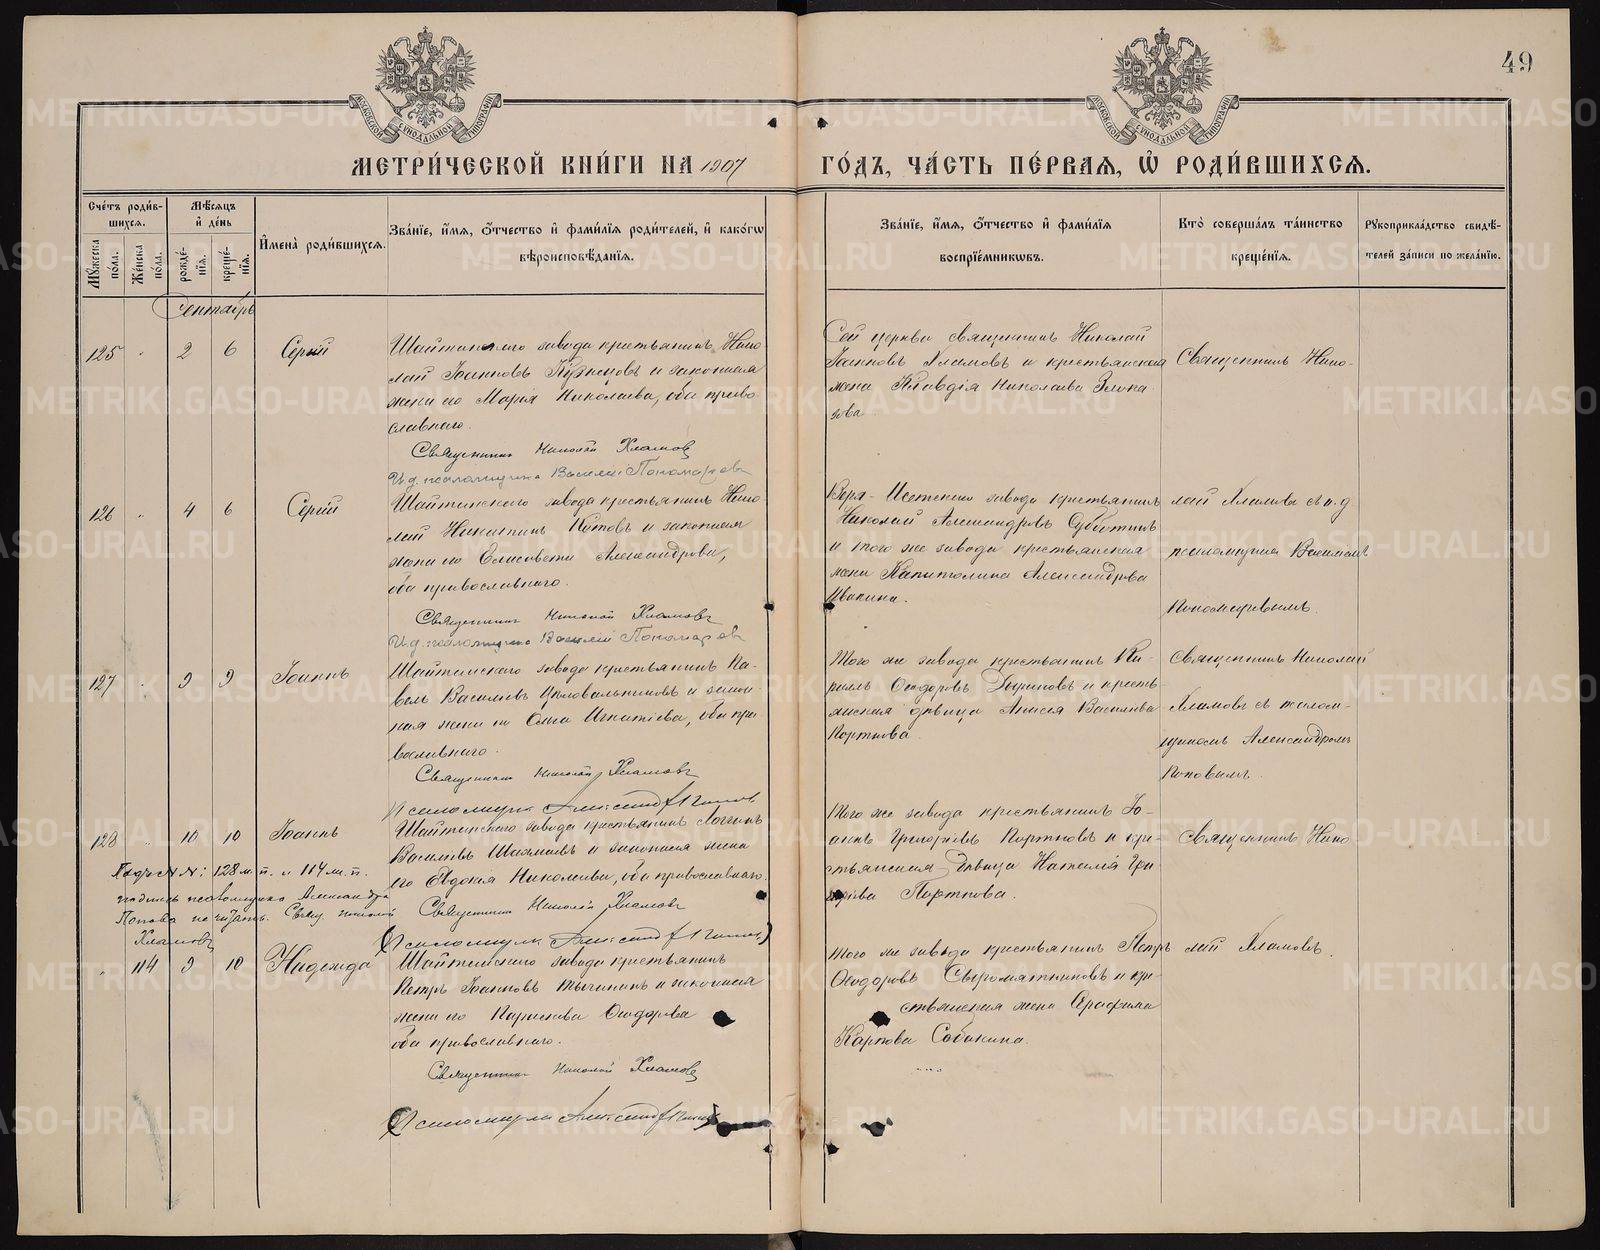 49
МОСКОВСКОЙ СѴНОДАЛЬНОЙ ТИПОГРАФІИ
МОСКОВСКОЙ СѴНОДАЛЬНОЙ ТИПОГРАФІИ
МЕТРИ́ЧЕСКОЙ КНИ́ГИ НА 1907 ГО́ДЪ, ЧА́СТЬ ПЕ́РВАЯ, Ѡ҆ РОДИ́ВШИХСЯ.
Сче́тъ роди́в-
шихся.
Мѣ́сяцъ
и҆ де́нь
Му́жеска по́ла.
Же́нска по́ла.
рожде́-
нїя.
креще́-
нїя.
И҆мена̀ роди́вшихся.
Зва́нїе, и҆́мя, ѻ҆́тчество и҆ фами́лїя роди́телей, и҆ како́гѡ
вѣроисповѣ́данїя.
Зва́нїе, и҆́мя, ѻ҆́тчество и҆ фами́лїя
воспрїе́мникѡвъ.
Кто̀ соверша́лъ та́инство
креще́нїя.
Рукоприкла́дство свидѣ́-
телей за́писи по жела́нїю.
Сентябрь
125 2 6 Сергій
Шайтанскаго завода крестьянинъ Нико-
лай Іоанновъ Кузнецовъ и законная
жена его Марія Николаева, оба право-
славнаго.
Священникъ Николай Хламовъ
И.д. псаломщика Василій Пономаревъ
Сей церкви священникъ Николай
Іоанновъ Хламовъ и крестьянская
жена Клавдія Николаева
Священникъ Нико-
126 4 6 Сергій
Шайтанскаго завода крестьянинъ Нико-
лай Никитинъ Котовъ и законная
жена его Елисавета Александрова,
оба православнаго.
Священникъ Николай Хламовъ
И.д. псаломщика Василій Пономаревъ
Верх-Исетскаго завода крестьянинъ
Николай Александровъ Субботинъ
и того же завода крестьянская
жена Капитолина Александрова
лай Хламовъ съ и.д
псаломщика Василіемъ
Пономаревымъ.
127 9 9 Іоаннъ
Шайтанскаго завода крестьянинъ Па-
велъ Васильевъ Целовальниковъ и закон-
ная жена его Ольга Игнатіева, оба пра-
вославнаго.
Священникъ Николай Хламовъ
Псаломщикъ Александръ Поповъ
Того же завода крестьянинъ Ки-
риллъ Ѳеодоровъ и кресть-
янская дѣвица Анисія Васильева
Портнова.
Священникъ Николай
Хламовъ съ псалом-
щикомъ Александромъ
Поповымъ.
128 10 10 Іоаннъ
Шайтанскаго завода крестьянинъ Логгинъ
Васильевъ Шахмаевъ и законная жена
его Евдокія Николаева, оба православнаго.
Священникъ Николай Хламовъ
(Псаломщикъ Александръ Поповъ)
Того же завода крестьянинъ Іо-
аннъ Григорьевъ Портновъ и кре-
стьянская дѣвица Наталія Гри-
горьева Портнова.
Священникъ Нико
Подъ №№: 128 м. п. и 114 ж. п.
подпись псаломщика Александра
Попова не читать. Свящ. Николай
Хламовъ
114 9 10 Надежда
Шайтанскаго завода крестьянинъ
Петръ Іоанновъ Тычинъ и законная
жена его Параскева Ѳеодорова
оба православнаго.
Священникъ Николай Хламовъ
(Псаломщикъ Александръ Поповъ)
Того же завода крестьянинъ Петръ
Ѳеодоровъ Сыромятниковъ и кре-
стьянская жена Серафима
Карпова Собакина.
лай Хламовъ.